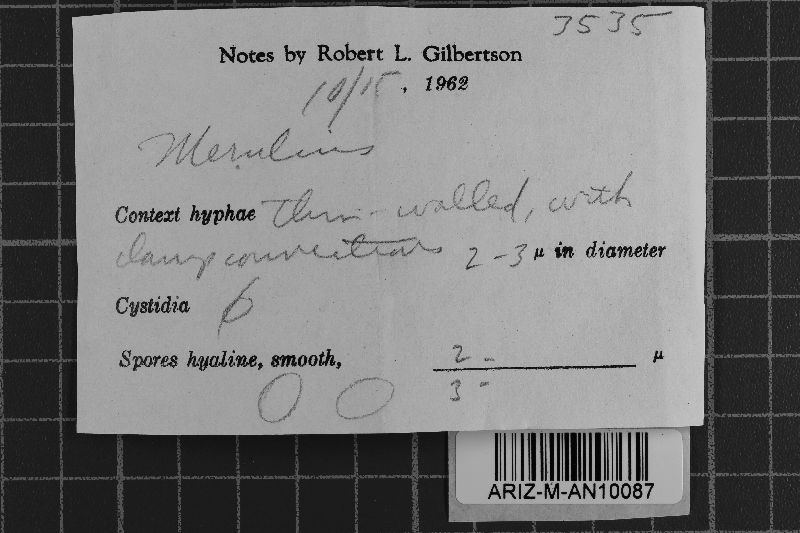 3535
Notes by Robert L. Gilbertson
10/15, 1962
Merulius
Context hyphae thin-walled, with
clamp connections 2-3 μ in diameter
Cystidia
Spores hyaline, smooth, 2 - μ
3 -
ARIZ-M-AN10087